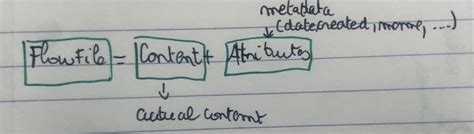 metadata
(datecreated, name, ...)
FlowFile = Content + Attributes
actual content